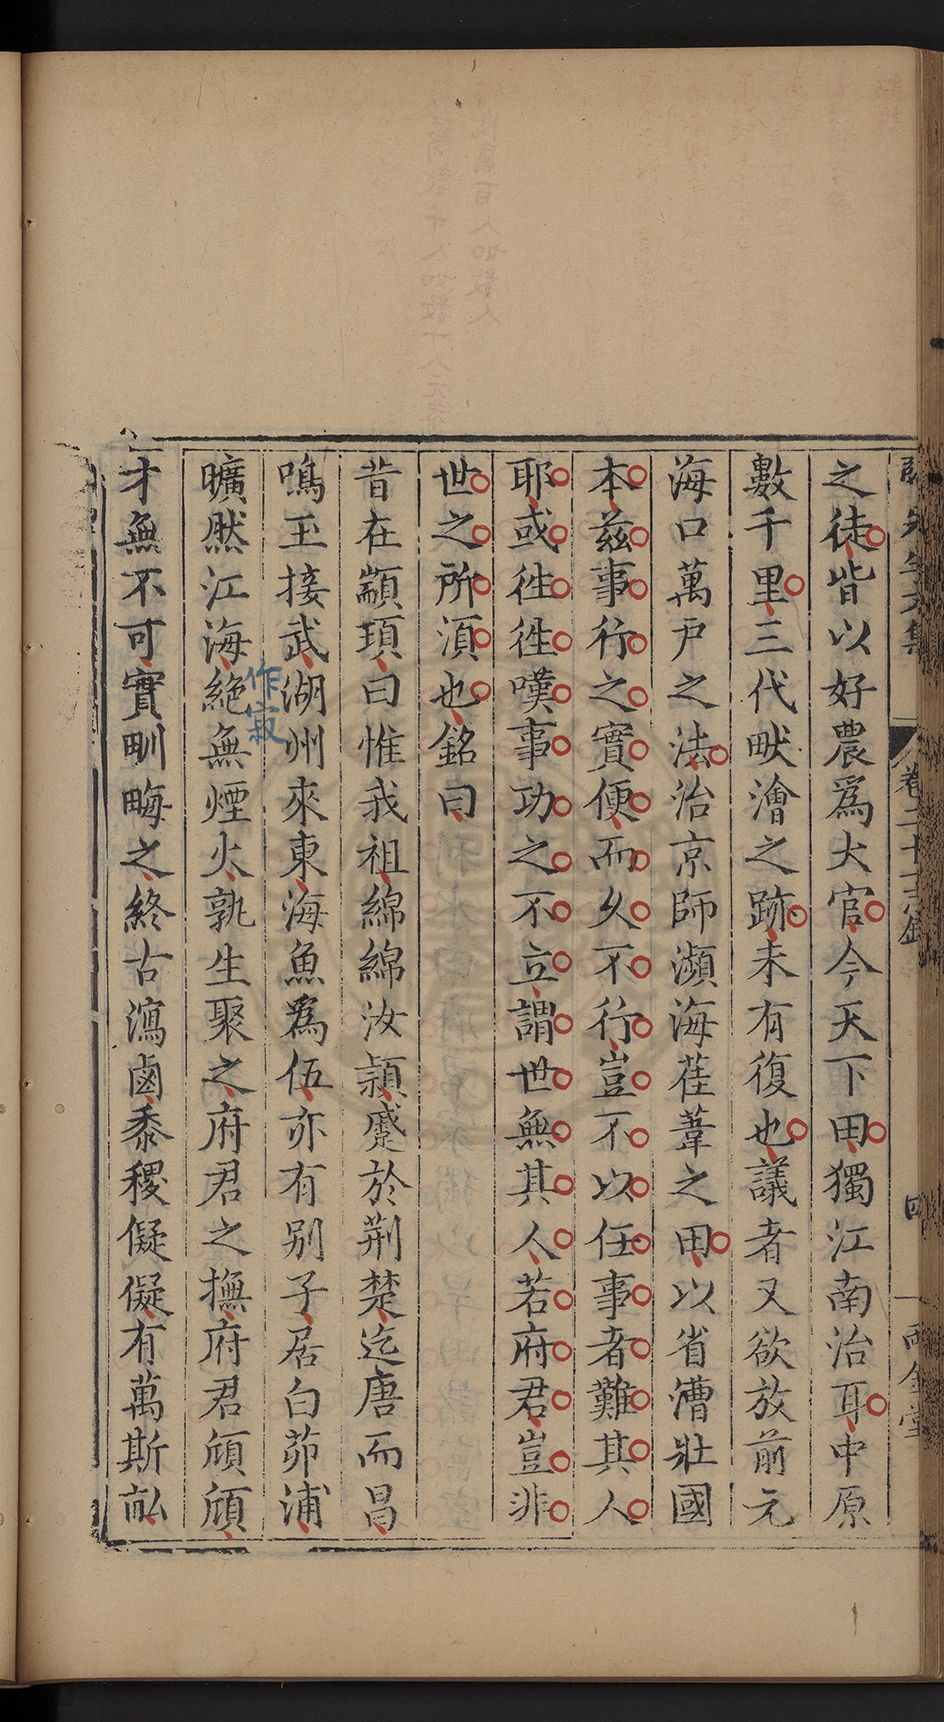 先生文集
卷二十
四
雨金堂
之徒皆以好農爲大官今天下田獨江南治耳中原
數千里三代畎澮之跡未有復也議者又欲放前元
海口萬戸之法治京師瀕海萑葦之田以省漕壯國
本茲事行之實便而久不行豈不以任事者難其人
耶或徃徃嘆事功之不立謂世無其人若府君豈非
世之所湏也銘曰
昔在顓頊曰惟我祖綿綿汝潁蹙於荆楚迄唐而昌
鳴玉接武湖州來東海魚爲伍亦有别子居白茆浦
作寂
曠然江海絶無煙火孰生聚之府君之撫府君頎頎
才無不可實甽畮之終古瀉鹵黍稷儗儗有萬斯畝